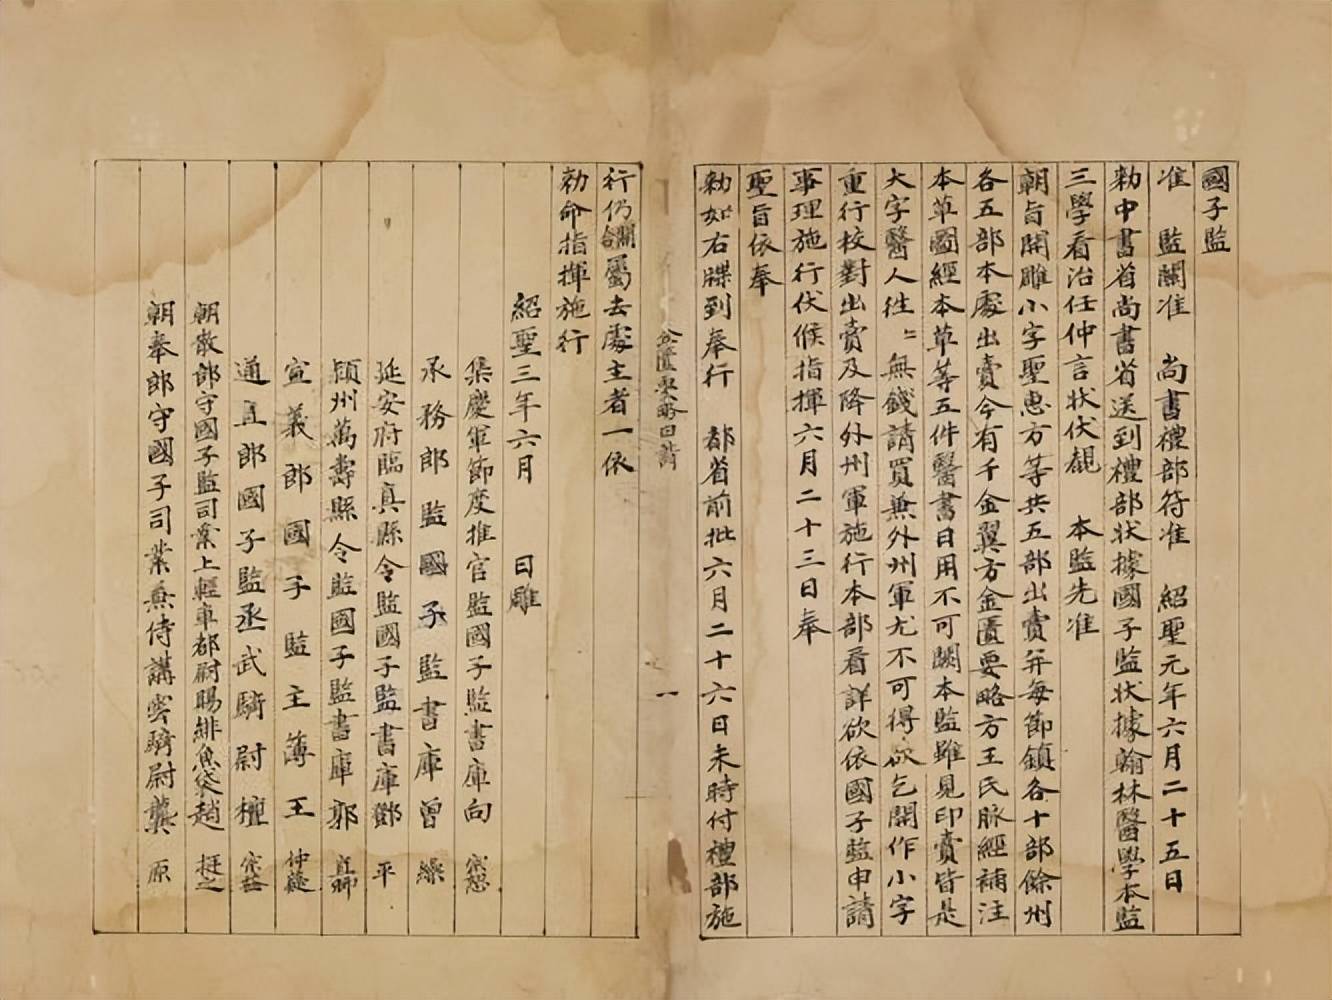 國子監
准　監關准　尚書禮部符准　紹聖元年六月二十五日
勑中書省尚書省送到禮部狀據國子監狀據翰林醫學本監
三學看治任仲言狀伏覩　本監先准
朝旨開雕小字聖惠方等共五部出賣并每節鎮各十部餘州
各五部本處出賣今有千金翼方金匱要略方王氏脉經補注
本草圖經本草等五件醫書日用不可闕本監雖見印賣皆是
大字醫人往〻無錢請買兼外州軍尤不可得欲乞開作小字
重行校對出賣及降外州軍施行本部看詳欲依國子監申請
事理施行伏候指揮六月二十三日奉
聖旨依奉
勑如右牒到奉行　都省前批六月二十六日未時付禮部施
行仍關合屬去處主者一依
勑命指揮施行
紹聖三年六月　日雕
集慶軍節度推官監國子監書庫向　宗恕
承務郎監國子監書庫曾　繰
延安府臨真縣令監國子監書庫鄧　平
頴州萬壽縣令監國子監書庫郭　直卿
宣義郎國子監主簿王　仲薿
通直郎國子監丞武騎尉檀　宗益
朝散郎守國子監司業上輕車都尉賜緋魚袋趙　挺之
朝奉郎守國子司業兼侍講雲騎尉龔　原
一